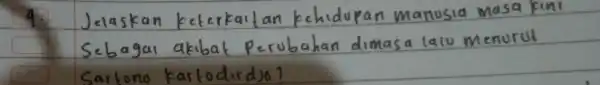 9. Jelaskan keterkaitan kehidupan manusia masa kini
Sebagai akibat Perubahan dimasa lalu menurut
Sartono kartodirdjo?